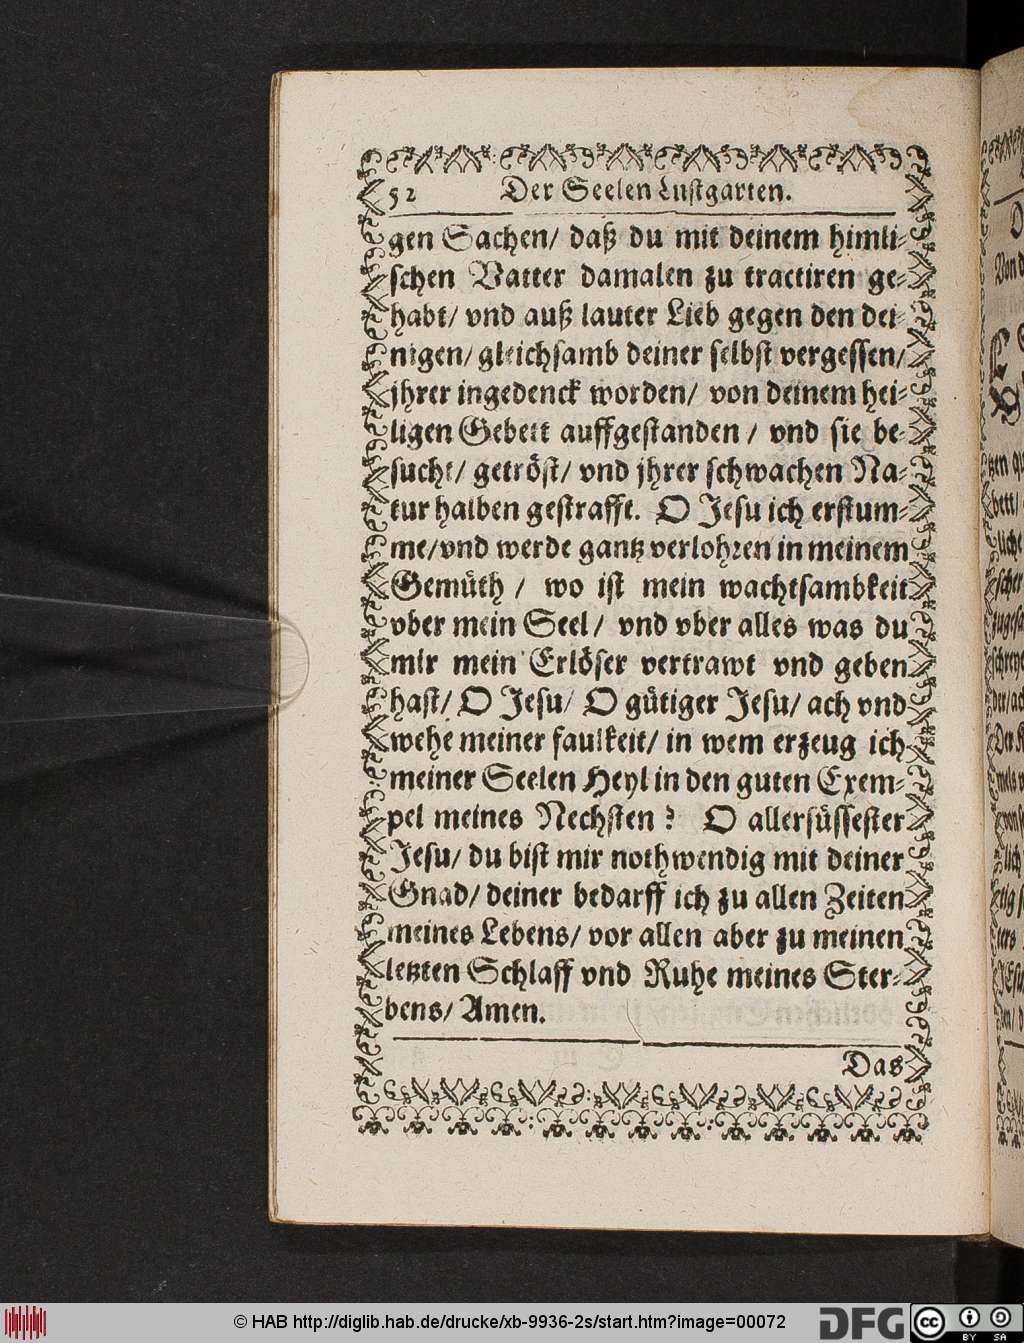 52 Der Seelen Lustgarten.
gen Sachen/ daß du mit deinem himli⸗
schen Vatter damalen zu tractiren ge⸗
habt/ vnd auß lauter Lieb gegen den dei⸗
nigen/ gleichsamb deiner selbst vergessen/
jhrer ingedenck worden/ von deinem hei⸗
ligen Gebett auffgestanden / vnd sie be⸗
sucht/ getröst/ vnd jhrer schwachen Na⸗
tur halben gestrafft. O Jesu ich erstum⸗
me/vnd werde gantz verlohren in meinem
Gemüth / wo ist mein wachtsambkeit
vber mein Seel/ vnd vber alles was du
mir mein Erlöser vertrawt vnd geben
hast/ O Jesu/ O gütiger Jesu/ ach vnd
wehe meiner faulkeit/ in wem erzeug ich
meiner Seelen Heyl in den guten Exem⸗
pel meines Nechsten ? O allersüssester
Jesu/ du bist mir nothwendig mit deiner
Gnad/ deiner bedarff ich zu allen Zeiten
meines Lebens/ vor allen aber zu meinen
letzten Schlaff vnd Ruhe meines Ster⸗
bens/ Amen.
Das
© HAB http://diglib.hab.de/drucke/xb-9936-2s/start.htm?image=00072
DFG
cc BY SA